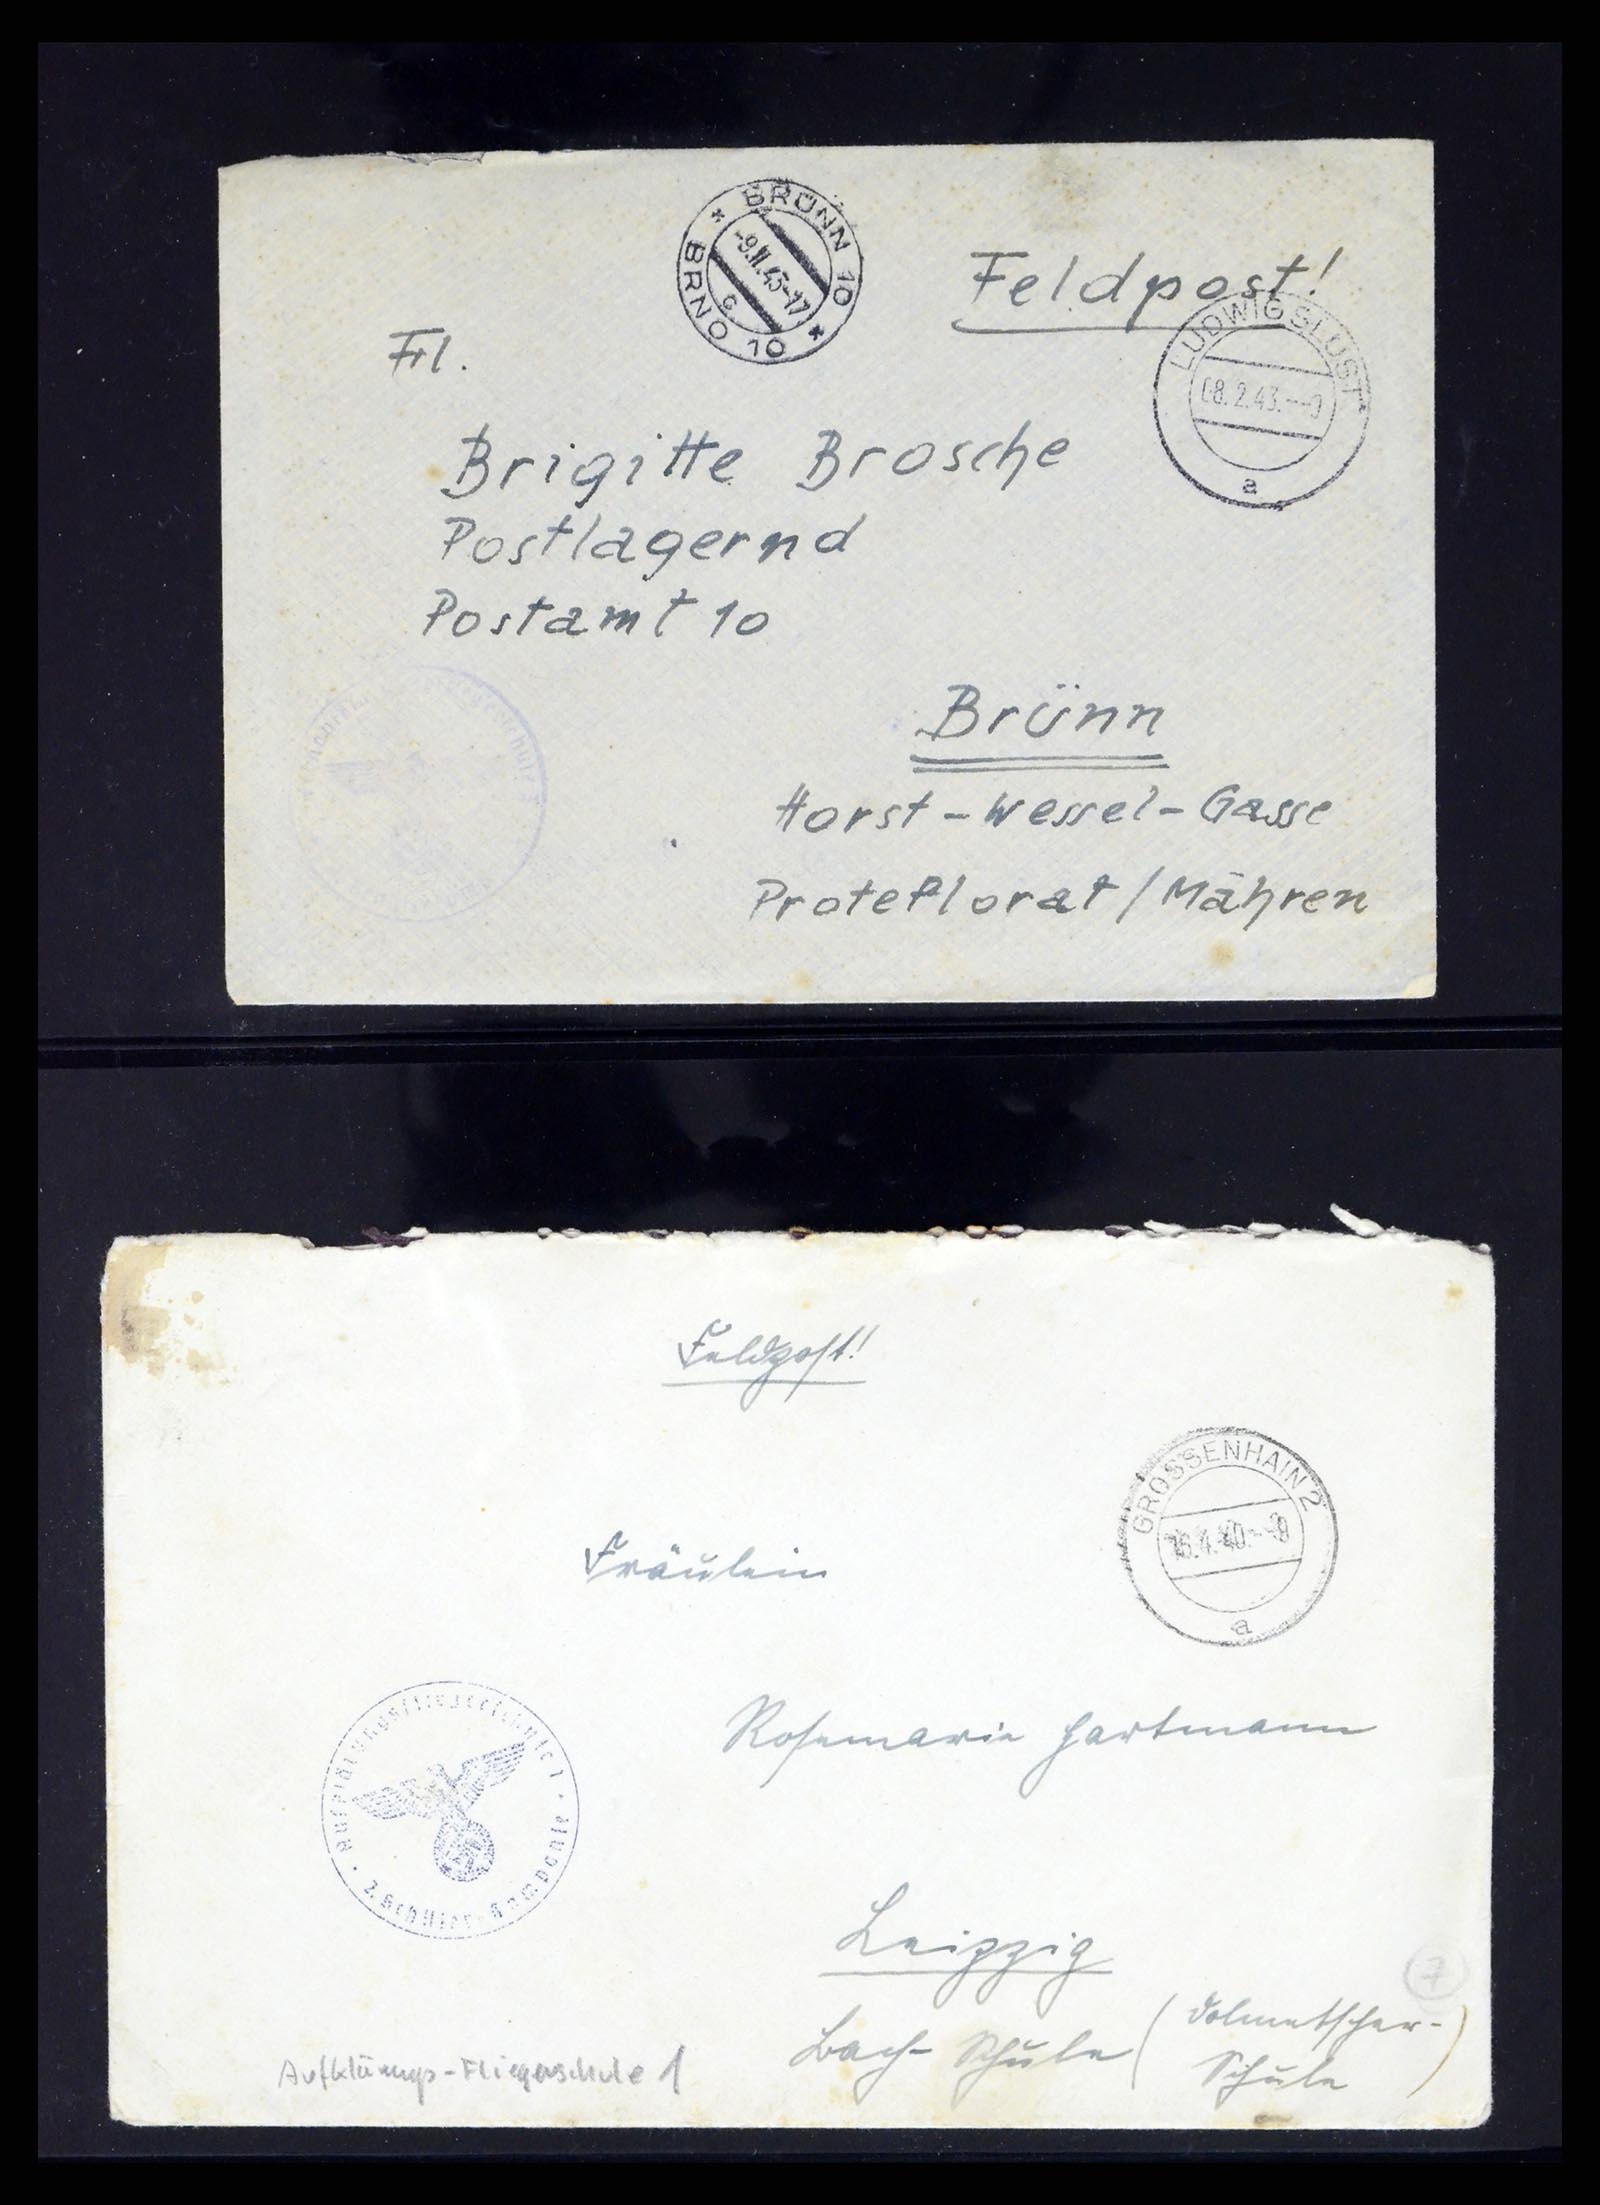 Feldpost!
* BRÜNN 10 *
BRNO 10
-9.II.43-17
c
LUDWIGSLUST
08.2.43.--9
a
Frl.
Brigitte Brosche
Postlagernd
Postamt 10
Brünn
Horst-Wessel-Gasse
Protektorat/Mähren
Feldpost!
GROSSENHAIN 2
16.4.40.--9
a
Fräulein
Rosemarie Hartmann
Aufklärungsfliegerschule 1
2. Schüler-Kompanie
Leipzig
Bach-Schule (Dolmetscher-
Schule)
7
Aufklärungs-Fliegerschule 1